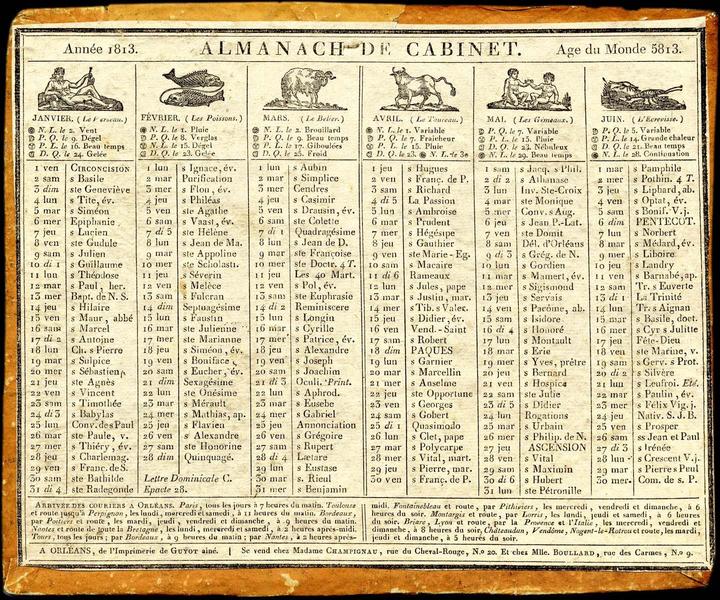 Année 1813.
ALMANACH DE CABINET.
Age du Monde 5813.
JANVIER. (Le Verseau.)
N. L. le 2. Vent
P. Q. le 9. Dégel
P. L. le 16. Beau temps
D. Q. le 24. Gelée
1 ven CIRCONCISION
2 sam s Basile
3 dim ste Geneviève
4 lun s Tite, év.
5 mar s Siméon
6 mer Epiphanie
7 jeu s Lucien
8 ven ste Gudule
9 sam s Julien
10 di 1 s Guillaume
11 lun s Théodose
12 mar s Paul, her.
13 mer Bapt. de N. S.
14 jeu s Hilaire
15 ven s Maur, abbé
16 sam s Marcel
17 di 2 s Antoine
18 lun Ch. s Pierre
19 mar s Sulpice
20 mer s Sébastien
21 jeu ste Agnès
22 ven s Vincent
23 sam s Timothée
24 di 3 s Babylas
25 lun Conv. des Paul
26 mar ste Paule, v.
27 mer s Thiéry, év.
28 jeu s Charlemag.
29 ven s Franc. de S.
30 sam ste Bathilde
31 di 4 ste Radegonde
FÉVRIER. (Les Poissons.)
N. L. le 1. Pluie
P. Q. le 8. Verglas
P. L. le 15. Dégel
D. Q. le 23. Gelée
1 lun s Ignace, év.
2 mar Purification
3 mer s Flou, év.
4 jeu s Philéas
5 ven ste Agathe
6 sam s Vaast, év.
7 di 5 ste Hélène
8 lun s Jean de Ma.
9 mar ste Appoline
10 mer ste Scholast.
11 jeu s Séverin
12 ven s Melèce
13 sam s Fulcran
14 dim Septuagésime
15 lun s Faustin
16 mar ste Julienne
17 mer ste Marianne
18 jeu s Siméon, év.
19 ven s Boniface
20 sam s Eucher, év.
21 dim Sexagésime
22 lun ste Onésime
23 mar s Mérault
24 mer s Mathias, ap.
25 jeu s Flavien
26 ven s Alexandre
27 sam ste Honorine
28 dim Quinquagé.
Lettre Dominicale C.
Epacte 28.
MARS. (Le Belier.)
N. L. le 2. Brouillard
P. Q. le 9. Beau temps
P. L. le 17. Giboulées
D. Q. le 25. Froid
1 lun s Aubin
2 mar s Simplice
3 mer Cendres
4 jeu s Casimir
5 ven s Drausin, év.
6 sam ste Colette
7 di 1 Quadragésime
8 lun s Jean de D.
9 mar ste Françoise
10 mer ste Docte. 4 T.
11 jeu Les 40 Mart.
12 ven s Pol, év.
13 sam ste Euphrasie
14 di 2 Reminiscere
15 lun s Longin
16 mar s Cyrille
17 mer s Patrice, év.
18 jeu s Alexandre
19 ven s Joseph
20 sam s Joachim
21 di 3 Oculi. Print.
22 lun s Aphrod.
23 mar s Eusebe
24 mer s Gabriel
25 jeu Annonciation
26 ven s Grégoire
27 sam s Rupert
28 di 4 Lætare
29 lun s Eustase
30 mar s. Rieul
31 mer s Benjamin
AVRIL. (Le Taureau.)
N. L. le 1. Variable
P. Q. le 7. Fraîcheur
P. L. le 15. Pluie
D. Q. le 23. N. L. le 30
1 jeu s Hugues
2 ven s Franç. de P.
3 sam s Richard
4 di 5 La Passion
5 lun s Ambroise
6 mar s Prudent
7 mer s Hégésipe
8 jeu s Gauthier
9 ven ste Marie-Eg.
10 sam s Macaire
11 di 6 Rameaux
12 lun s Jules, pape
13 mar s Justin, mar.
14 mer s Tib. s Valex.
15 jeu s Didier, év.
16 ven Vend.-Saint
17 sam s Robert
18 dim PAQUES
19 lun s Garnier
20 mar s Marcellin
21 mer s Anselme
22 jeu ste Opportune
23 ven s Georges
24 sam s Gobert
25 di 1 Quasimodo
26 lun s Clet, pape
27 mar s Polycarpe
28 mer s Vital, mart.
29 jeu s Pierre, mar.
30 ven s Franç. de P.
MAI. (Les Gémeaux.)
P. Q. le 7. Variable
P. L. le 15. Pluie
D. Q. le 23. Nébuleux
N. L. le 29. Beau temps
1 sam s Jacq. s Phil.
2 di 2 s Athanase
3 lun Inv. Ste-Croix
4 mar ste Monique
5 mer Conv. s Aug.
6 jeu s Jean P.-Lat.
7 ven ste Domit
8 sam Dél. d'Orléans
9 di 3 s Grég. de N.
10 lun s Gordien
11 mar s Mamert, év.
12 mer s Sigismond
13 jeu s Servais
14 ven s Pacôme, ab.
15 sam s Isidore
16 di 4 s Honoré
17 lun s Montault
18 mar s Erie
19 mer s Yves, prêtre
20 jeu s Bernard
21 ven s Hospice
22 sam ste Julie
23 di 5 s Didier
24 lun Rogations
25 mar s Urbain
26 mer s Philip. de N.
27 jeu ASCENSION
28 ven s Vital
29 sam s Maximin
30 di 6 s Hubert
31 lun ste Pétronille
JUIN. (L'Ecrevisse.)
P. Q. le 5. Variable
P. L. le 14. Grande chaleur
D. Q. le 21. Beau temps
N. L. le 28. Continuation
1 mar s Pamphile
2 mer s Pothin. 4 T.
3 jeu s Liphard, ab.
4 ven s Optat, év.
5 sam s Bonif. V. j.
6 dim PENTECOT.
7 lun s Norbert
8 mar s Médard, év.
9 mer s Liboire
10 jeu s Landry
11 ven s Barnabé, ap.
12 sam Tr. s Euverte
13 di 1 La Trinité
14 lun Tr. s Aignan
15 mar s Basile, doct.
16 mer s Cyr s Julitte
17 jeu Fête-Dieu
18 ven ste Marine, v.
19 sam s Gerv. s Prot.
20 di 2 s Silvère
21 lun s Leufroi. Eté.
22 mar s Paulin, év.
23 mer s Félix Vig. j.
24 jeu Nativ. S. J. B.
25 ven s Prosper
26 sam ss Jean et Paul
27 di 3 s Irénée
28 lun s Crescent V. j.
29 mar s Pierre s Paul
30 mer Com. de s P.
ARRIVÉE DES COURIERS A ORLÉANS. Paris, tous les jours à 7 heures du matin. Toulouse
et route jusqu'à Perpignan, les lundi, mercredi et samedi, à 11 heures du matin. Bordeaux,
par Poitiers et route, les mardi, jeudi, vendredi et dimanche, à 9 heures du matin.
Nantes et route de gauche Bretagne, les lundi, mercredi et samedi, à 2 heures après-midi.
Tours, tous les jours; par Bordeaux, à 9 heures du matin; par Nantes, à 2 heures après-
midi. Fontainebleau et route, par Pithiviers, les mercredi, vendredi et dimanche, à 6
heures du soir. Montargis et route, par Lorris, les lundi, jeudi et samedi, à 6 heures
du soir. Briare, Lyon et route, par la Provence et l'Italie, les mercredi, vendredi
et dimanche, à 8 heures du soir. Châteaudun, Vendôme, Nogent-le-Rotrou et route, les mardi,
jeudi et dimanche, à 5 heures du soir.
A ORLÉANS, de l'Imprimerie de GUYOT aîné. | Se vend chez Madame CHAMPIGNAU, rue du Cheval-Rouge, N.º 20. Et chez Mlle. BOULLARD, rue des Carmes, N.º 9.